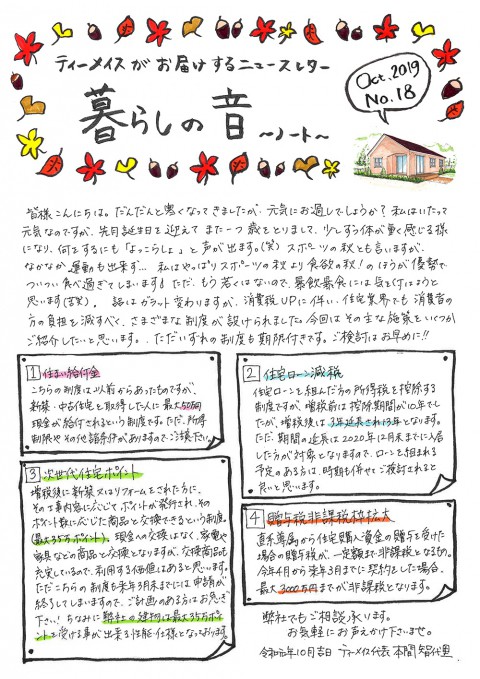 ティーメイスがお届けするニュースレター
暮らしの音
~ノート~
Oct. 2019
No.18
皆様こんにちは。だんだんと寒くなってきましたが、元気にお過しでしょうか？私はいたって
元気なのですが、先月誕生日を迎えてまた一つ歳をとりまして、少しずつ体が重く感じる様
になり、何をするにも「よっこらしょ」と声が出ます。(笑) スポーツの秋とも言いますが、
なかなか運動も出来ず… 私はやっぱりスポーツの秋より食欲の秋！のほうが優勢で
ついつい食べ過ぎてしまいます！ただ、もう若くはないので、暴飲暴食には気を付けようと
思います(苦笑)。 話はガラット変わりますが、消費税UPに伴い、住宅業界でも消費者の
方の負担を減すべく、さまざまな制度が設けられました。今回はその主な施策をいくつか
ご紹介したいと思います。ただいずれの制度も期限付きです。ご検討はお早めに!!
1 住まい給付金
こちらの制度は以前からあったものですが、
新築・中古住宅を取得した人に最大50万円
現金が給付されるという制度です。ただ、所得
制限やその他諸条件がありますのでご注意下さい。
2 住宅ローン減税
住宅ローンを組んだ方の所得税を控除する
制度ですが、増税前は控除期間が10年でし
たが、増税後は3年延長され13年となります。
ただ期間の延長は2020年12月末までに入居
した方が対象となりますので、ローンを組まれる
予定のある方は、時期も併せてご検討されると
良いと思います。
3 次世代住宅ポイント
増税後に新築又はリフォームをされた方に、
その工事内容に応じてポイントが発行され、その
ポイント数に応じた商品と交換できるという制度。
(最大35万ポイント)。現金の交換はなく、家電や
家具などの商品と交換となりますが、交換商品も
充実しているので、利用する価値はあると思います。
ただこちらの制度も来年3月末までには申請が
終了してしまいますので、ご計画のある方はお急ぎ
下さい！ちなみに弊社の建物は最大35万ポイ
ントを受ける事が出来る性能・仕様となっております。
4 贈与税非課税枠拡大
直系尊属から住宅購入資金の贈与を受けた
場合の贈与税が、一定額まで非課税となるもの。
今年4月から来年3月までに契約した場合、
最大3000万円までが非課税となります。
弊社でもご相談承ります。
お気軽にお声えかけ下さいませ。
令和元年10月吉日 ティーメイス代表 本間智代里